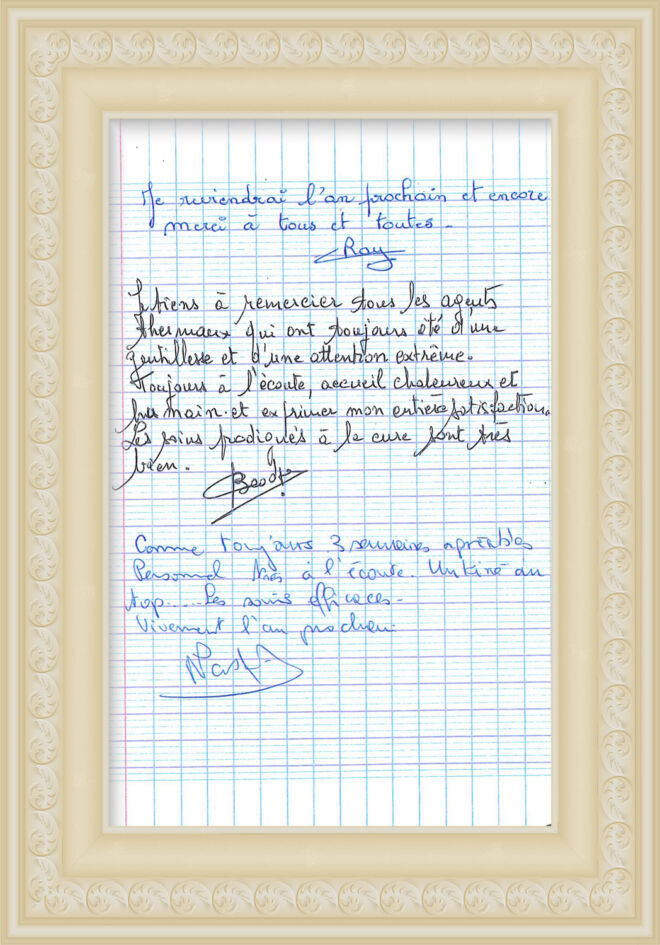 Je reviendrai l'an prochain et encore
merci à tous et toutes.
Roy
tiens à remercier tous les agents
thermaux qui ont toujours été d'une
gentillesse et d'une attention extrême.
Toujours à l'écoute, accueil chaleureux et
main. et exprimer mon entière satisfaction.
Les soins prodigués à la cure sont très
bien.
Comme toujours 3 semaines agréables
Personnel très à l'écoute. Un kiné au
top..... Les soins efficaces -
Vivement l'an prochain.